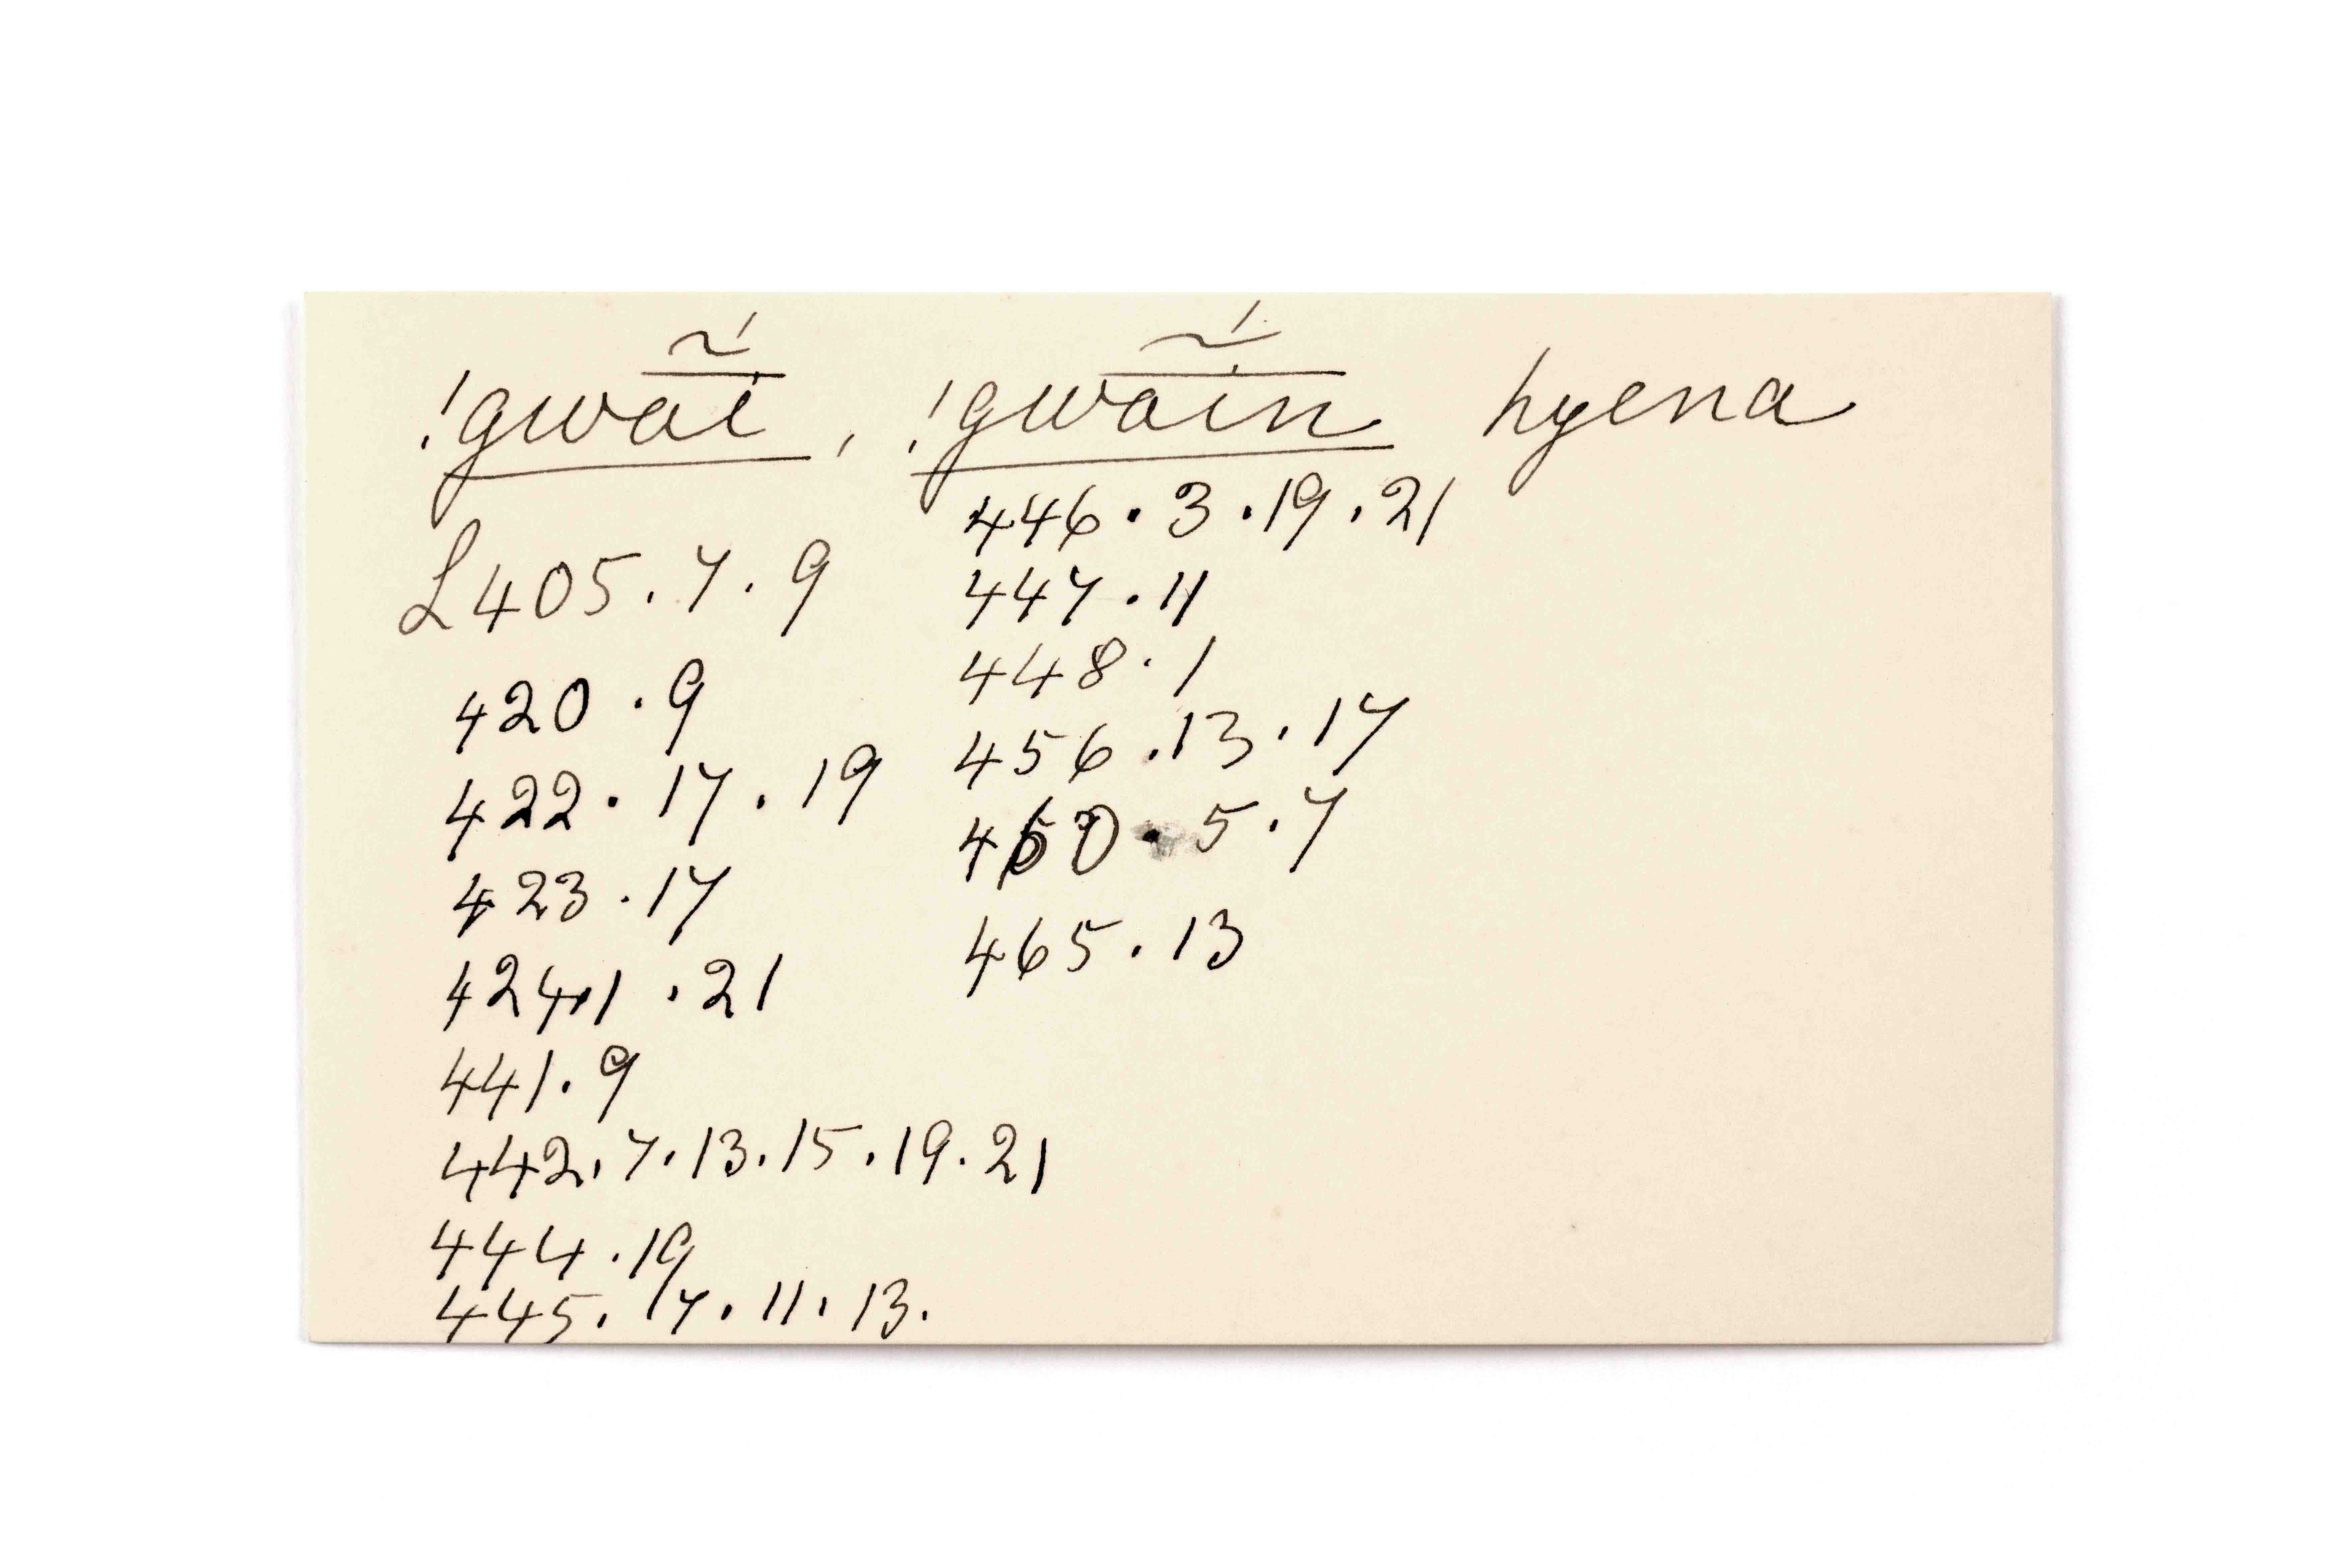 !gwãí, !gwãín hyena
L405.7.9
420.9
422.17.19
423.17
424.1.21
441.9
442.7.13.15.19.21
444.19
445.17.11.13.
446.3.19.21
447.11
448.1
456.13.17
460.5.7
465.13